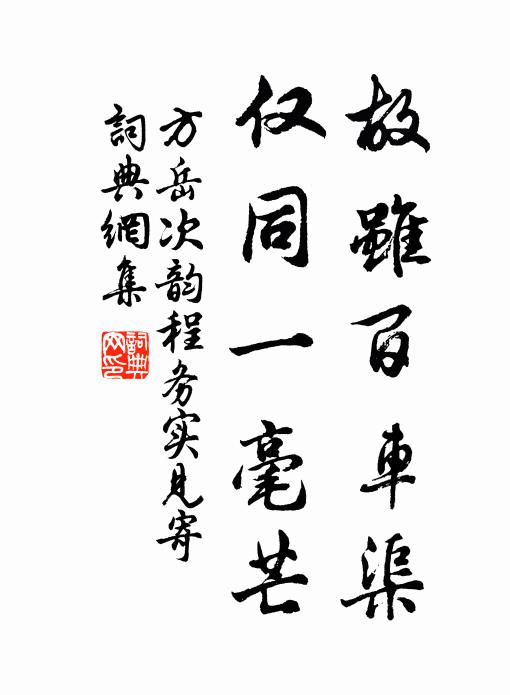 故雖百車渠
仅同一毫芒
方岳次韵程务实见寄
詞典網集
詞典网印